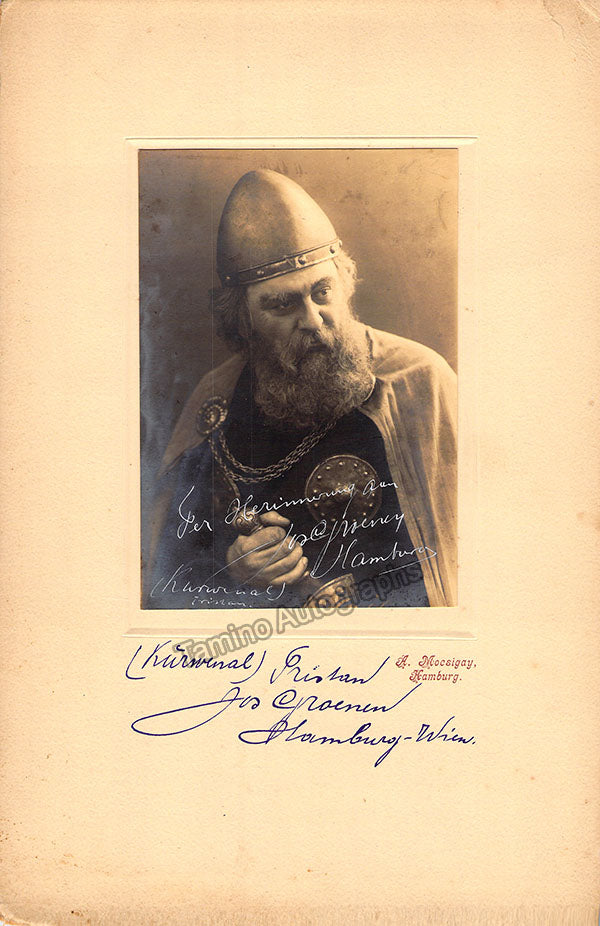 Per Herinnering aan
Jos Groenen
Hamburg
(Kurwenal)
Tristan.
Tamino Autographs
(Kurwenal) Tristan
Jos Groenen
Hamburg-Wien.
A. Mocsigay,
Hamburg.